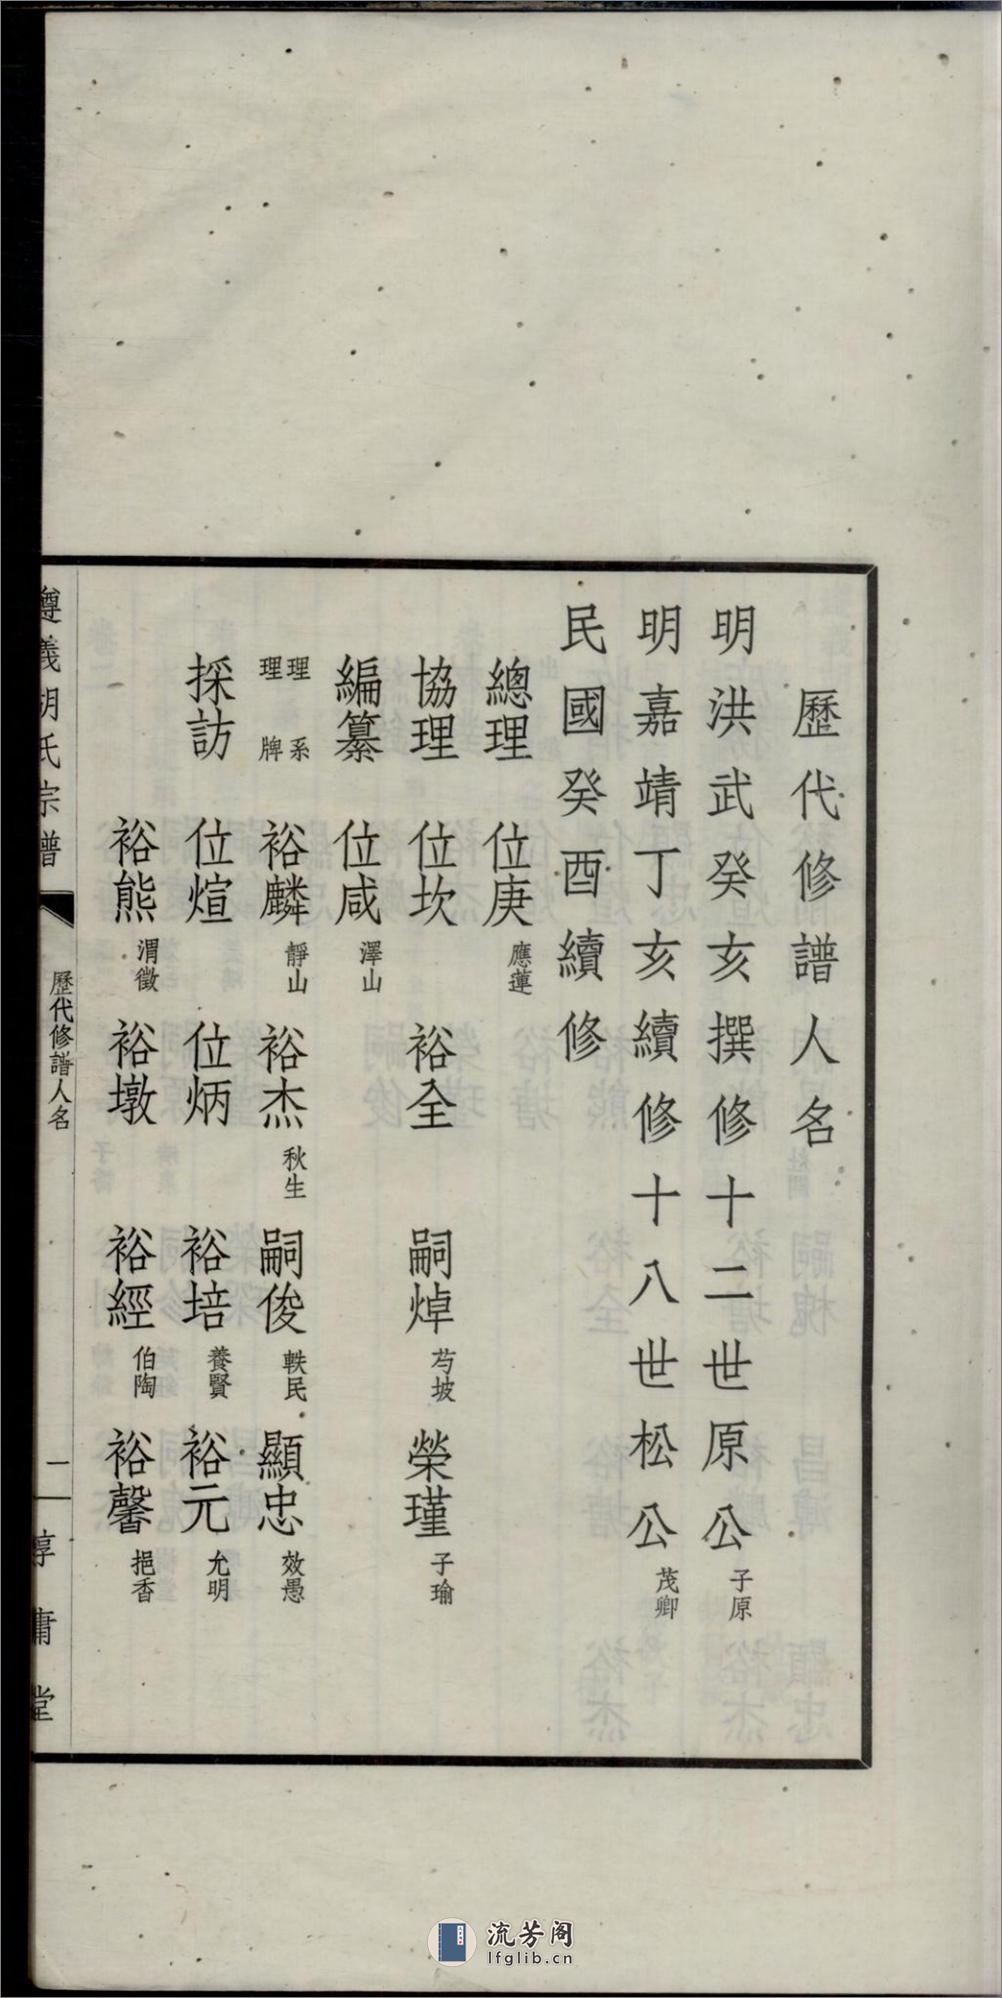 歷代修譜人名
明洪武癸亥撰修十二世原公 子原
明嘉靖丁亥續修十八世松公 茂卿
民國癸酉續修
總理 位庚 應蓮
協理 位坎 裕全 嗣焯 芍坡 榮瑾 子瑜
編纂 位咸 澤山
理系 理牌 裕麟 靜山 裕杰 秋生 嗣俊 軼民 顯忠 效愚
採訪 位煊 位炳 裕培 養賢 裕元 允明
裕熊 渭徵 裕墩 裕經 伯陶 裕馨 挹香
遵義胡氏宗譜 歷代修譜人名 一 惇庸堂
流芳阁
lfglib.cn